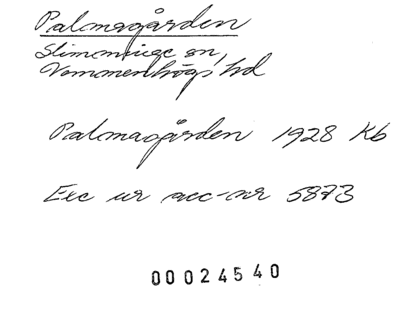 Palmagården
Slimminge sn,
Vemmenhögs hd
Palmagården 1928 Kb
Exc ur acc-nr 5873
00024540